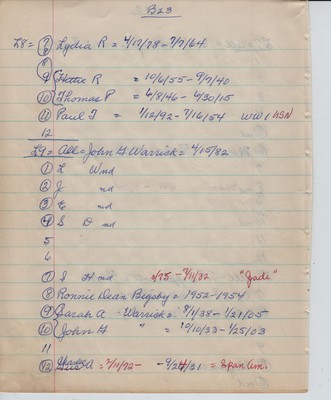 B23
L8= ⑦ Lydia R = 4/17/78 - 7/7/64
8
⑨ Hettie R = 10/6/55 - 9/7/40
⑩ Thomas P = 6/8/46 - 4/30/15
⑪ Paul T = 7/12/92 - 7/16/54 WW I USN
12
L9= All = John H Warrick = 4/15/82
① L W nd
② J nd
③ E nd
④ S D nd
5
6
⑦ S H nd 2/75 - 9/11/32 "Zade"
⑧ Ronnie Dean Bigsby = 1952-1954
⑨ Sarah A Warrick = 8/1/38 - 1/21/05
⑩ John H " = 10/10/33 - 1/25/03
11
⑫ A = 2/11/72 - 9/24/31 = Span Am.